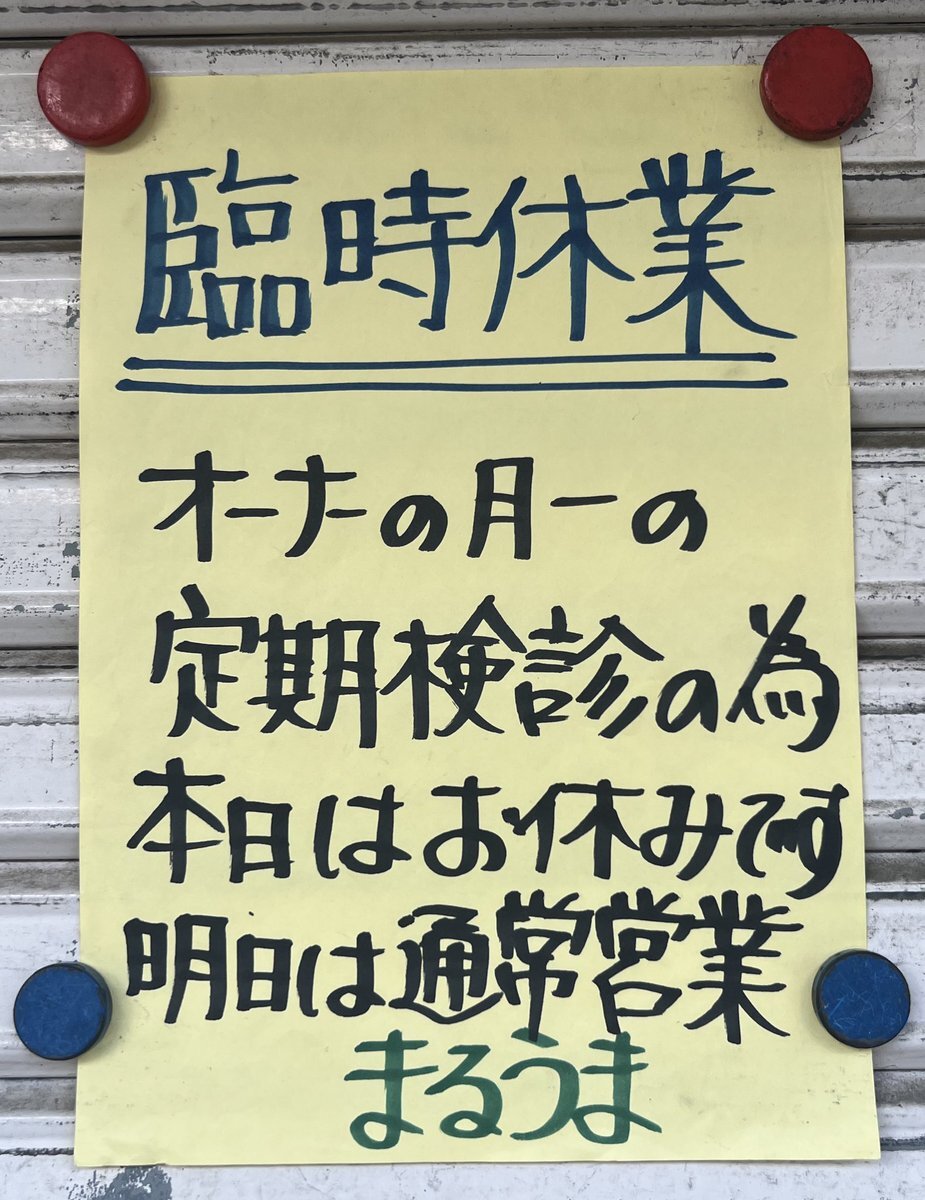 臨時休業
オーナーの月一の
定期検診の為
本日はお休みです
明日は通常営業
まるうま